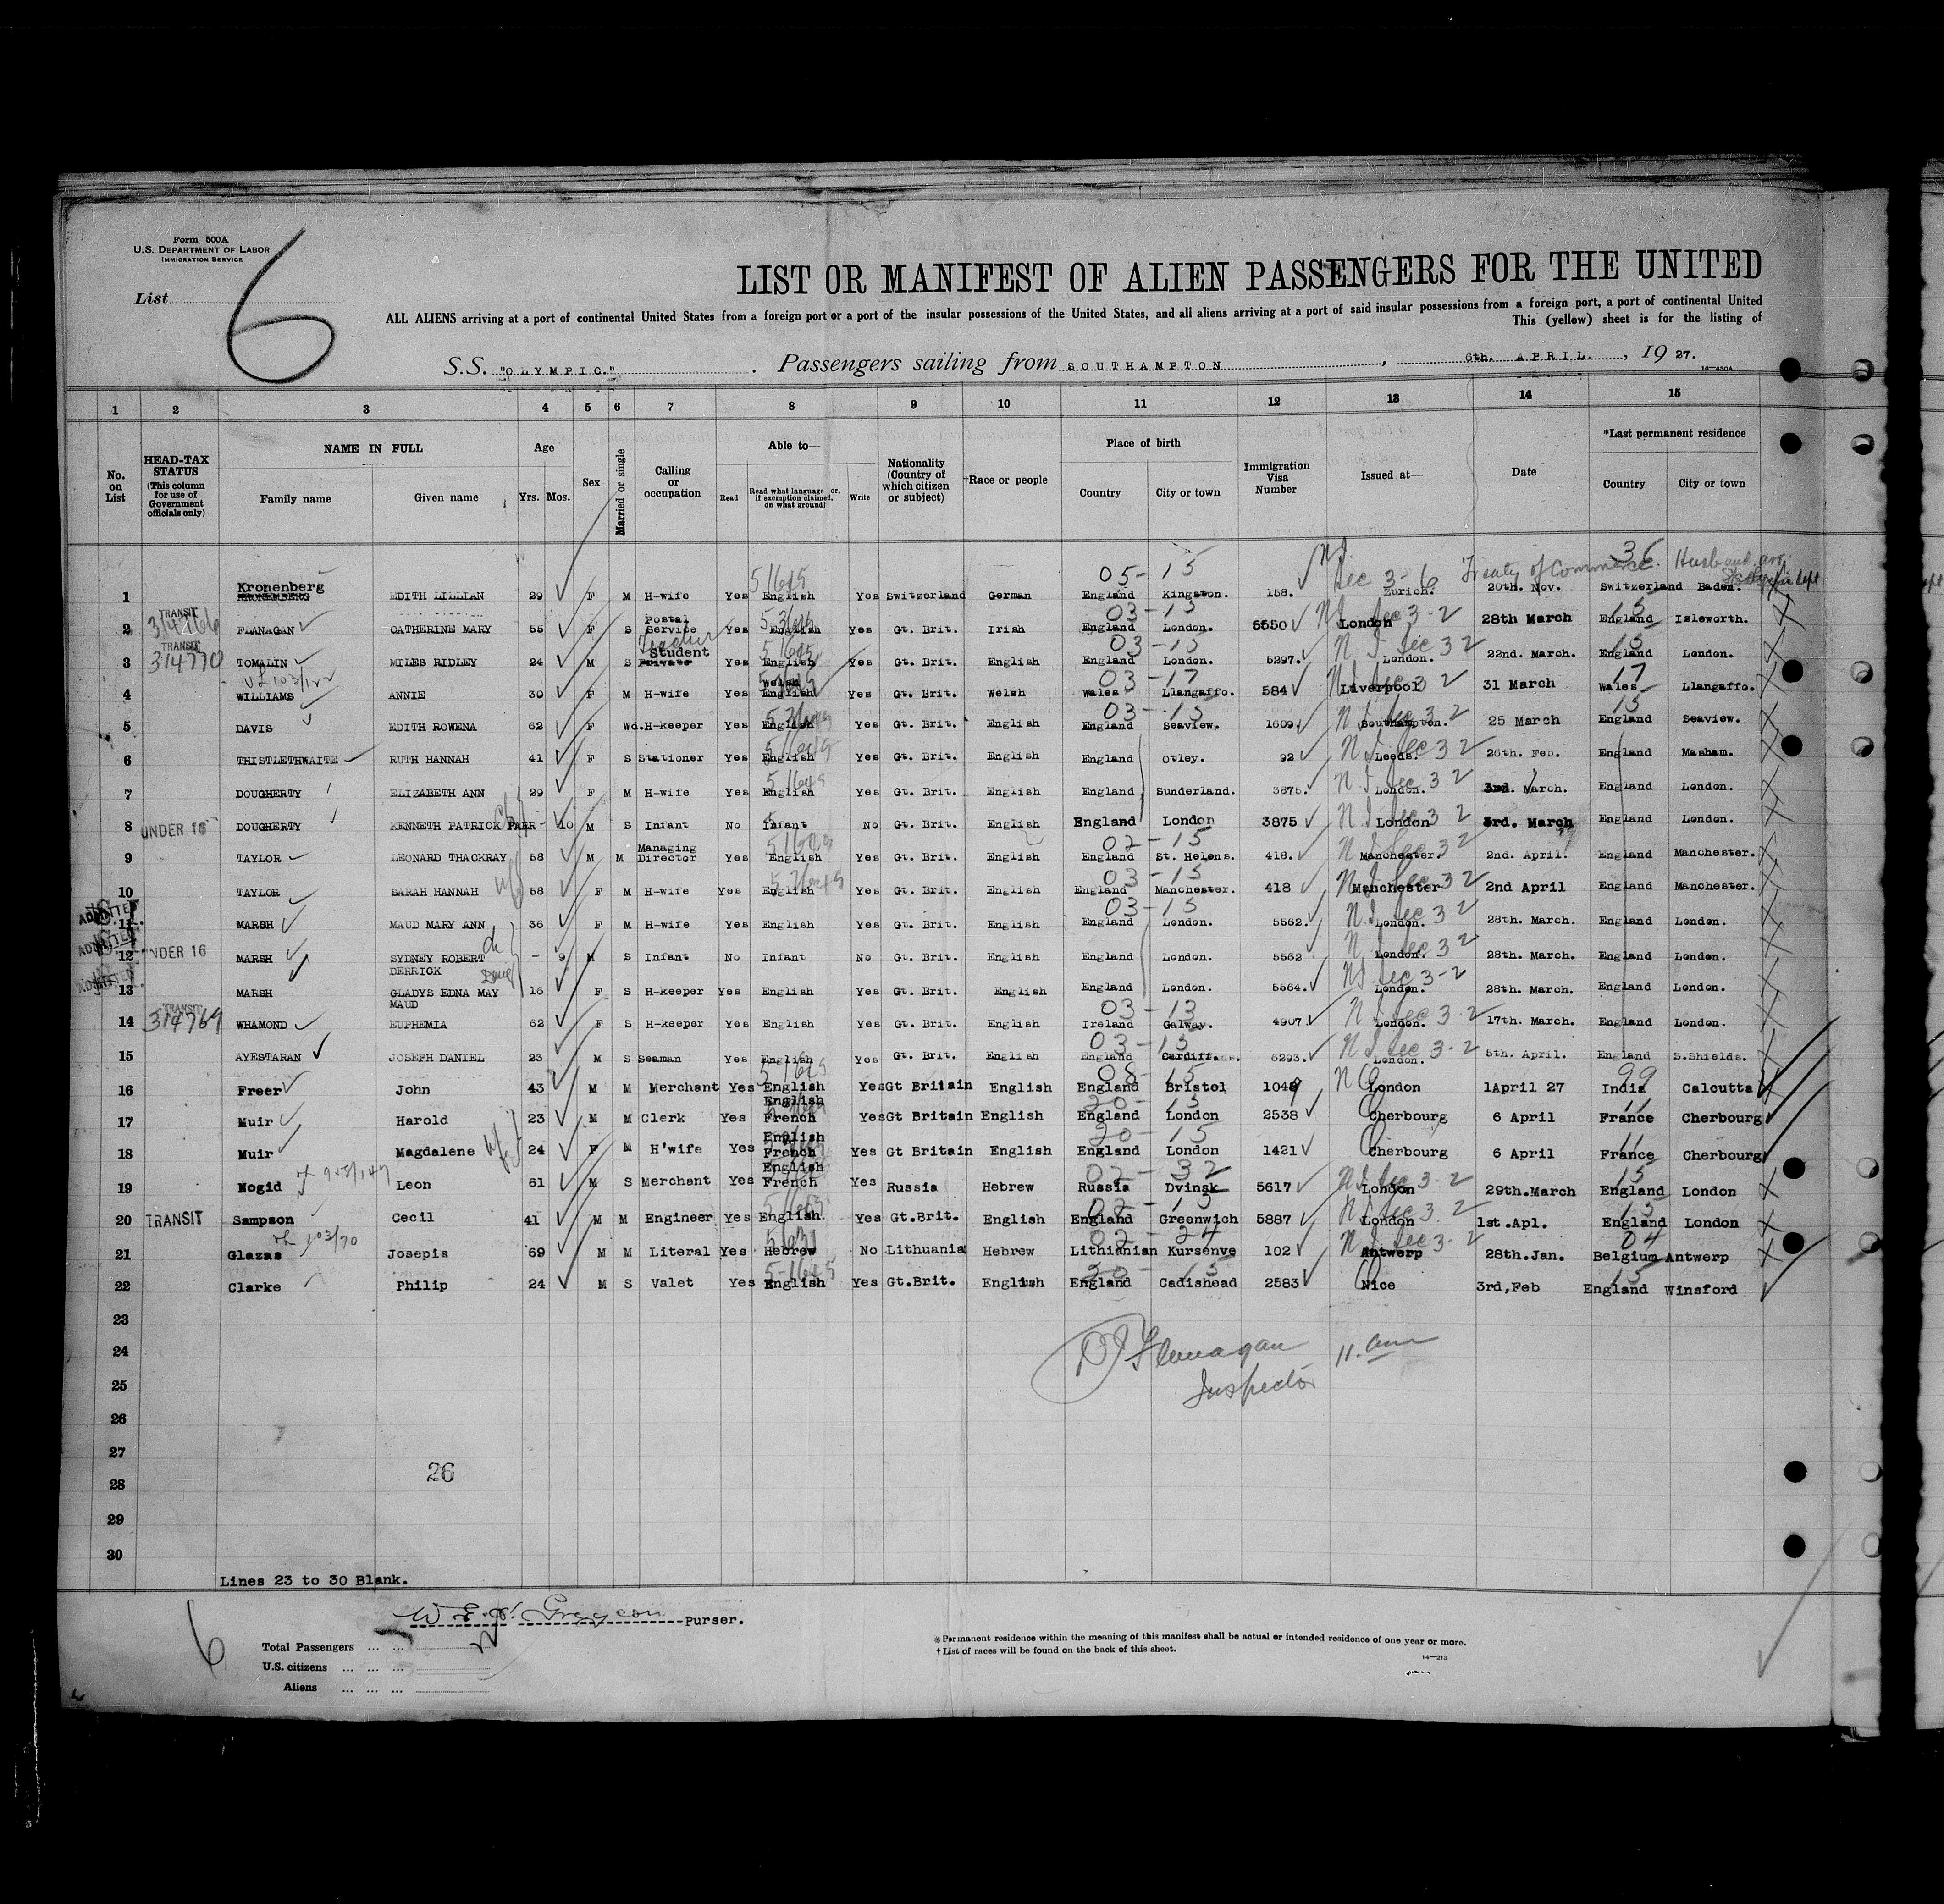 Form 500A
U.S. DEPARTMENT OF LABOR
IMMIGRATION SERVICE
List
6
LIST OR MANIFEST OF ALIEN PASSENGERS FOR THE UNITED
ALL ALIENS arriving at a port of continental United States from a foreign port or a port of the insular possessions of the United States, and all aliens arriving at a port of said insular possessions from a foreign port, a port of continental United
This (yellow) sheet is for the listing of
S.S. "OLYMPIC." Passengers sailing from SOUTHAMPTON, 6th. APRIL., 19 27.
14—430A
1 2 3 4 5 6 7 8 9 10 11 12 13 14 15
No. on List
HEAD-TAX STATUS (This column for use of Government officials only)
NAME IN FULL
Family name Given name
Age
Yrs. Mos.
Sex
Married or single
Calling or occupation
Able to—
Read Read what language or, if exemption claimed, on what ground Write
Nationality (Country of which citizen or subject)
†Race or people
Place of birth
Country City or town
Immigration Visa Number
Issued at—
Date
*Last permanent residence
Country City or town
N.I. Sec 3-6 Treaty of Commerce. 36 Husband
05-15
1 Kronenberg EDITH LILLIAN 29 F M H-wife Yes English Yes Switzerland German England Kingston. 158. Zurich. 26th. Nov. Switzerland Baden.
03-15 N I Sec 3-2 15
2 TRANSIT 314766 FLANAGAN CATHERINE MARY 55 F S Postal Service Yes English Yes Gt. Brit. Irish England London. 5550 London 28th March England Isleworth.
03-15 N I Sec 3 2 15
3 TRANSIT 314770 TOMALIN MILES RIDLEY 24 M S Teacher Student Private Yes English Yes Gt. Brit. English England London. 5297. London. 22nd. March. England London.
03-17 17
4 WILLIAMS ANNIE 30 F M H-wife Yes Welsh English Yes Gt. Brit. Welsh Wales Llangaffo. 584 Liverpool 31 March Wales Llangaffo.
03-15 N I Sec 3 2 15
5 DAVIS EDITH ROWENA 62 F Wd. H-keeper Yes English Yes Gt. Brit. English England Seaview. 1609. Southampton. 25 March England Seaview.
6 THISTLETHWAITE RUTH HANNAH 41 F S Stationer Yes English Yes Gt. Brit. English England Otley. 92 N I Sec 3 2 Leeds. 26th. Feb. England Masham.
7 DOUGHERTY ELIZABETH ANN 29 F M H-wife Yes English Yes Gt. Brit. English England Sunderland. 3875. N I Sec 3 2 London. 3rd. March. England London.
8 UNDER 16 DOUGHERTY KENNETH PATRICK PARR - 10 M S Infant No Infant No Gt. Brit. English England London 3875 N I Sec 3 2 London 3rd. March England London.
02-15
9 TAYLOR LEONARD THACKRAY 58 M M Managing Director Yes English Yes Gt. Brit. English England St. Helens. 418. N I Sec 3 2 Manchester. 2nd. April. England Manchester.
03-15
10 TAYLOR SARAH HANNAH wife 58 F M H-wife Yes English Yes Gt. Brit. English England Manchester. 418 N I Sec 3 2 Manchester 2nd April England Manchester.
03-15
11 ADMITTED MARSH MAUD MARY ANN 36 F M H-wife Yes English Yes Gt. Brit. English England London. 5562. N I Sec 3 2 London. 28th. March. England London.
12 ADMITTED UNDER 16 MARSH SYDNEY ROBERT DERRICK - 9 M S Infant No Infant No Gt. Brit. English England London. 5562 N I Sec 3 2 London. 28th. March. England London.
13 ADMITTED MARSH GLADYS EDNA MAY MAUD 16 F S H-keeper Yes English Yes Gt. Brit. English England London. 5564. N I Sec 3-2 London. 28th. March. England London.
03-13
14 TRANSIT 314769 WHAMOND EUPHEMIA 62 F S H-keeper Yes English Yes Gt. Brit. English Ireland Galway. 4907 N I Sec 3-2 London. 17th. March. England London.
03-15
15 AYESTARAN JOSEPH DANIEL 23 M S Seaman Yes English Yes Gt. Brit. English England Cardiff. 6293. N I Sec 3-2 London. 5th. April. England S.Shields.
08-15 99
16 Freer John 43 M M Merchant Yes English Yes Gt Britain English England Bristol 1049 London 1April 27 India Calcutta
20-15 11
17 Muir Harold 23 M M Clerk Yes English French Yes Gt Britain English England London 2538 Cherbourg 6 April France Cherbourg
20-15 11
18 Muir Magdalene wife 24 F M H'wife Yes English French Yes Gt Britain English England London 1421 Cherbourg 6 April France Cherbourg
02-32 15
19 Nogid Leon 61 M S Merchant Yes English French Yes Russia Hebrew Russia Dvinsk 5617 N I Sec 3-2 London 29th.March England London
02-15 15
20 TRANSIT Sampson Cecil 41 M M Engineer Yes English Yes Gt.Brit. English England Greenwich 5887 N I Sec 3-2 London 1st.Apl. England London
02-24 04
21 Glazas Josepis 69 M M Literal Yes Hebrew No Lithuania Hebrew Lithianian Kursenve 102 N I Sec 3-2 Antwerp 28th.Jan. Belgium Antwerp
20-15 15
22 Clarke Philip 24 M S Valet Yes English Yes Gt.Brit. English England Cadishead 2583 Nice 3rd,Feb England Winsford
23
24 Flanagan 11. am
25 Inspector
26
27
26
28
29
30
Lines 23 to 30 Blank.
Purser.
6
Total Passengers ... ...
U.S. citizens ... ... ...
Aliens ... ... ...
* Permanent residence within the meaning of this manifest shall be actual or intended residence of one year or more.
† List of races will be found on the back of this sheet.
14—213